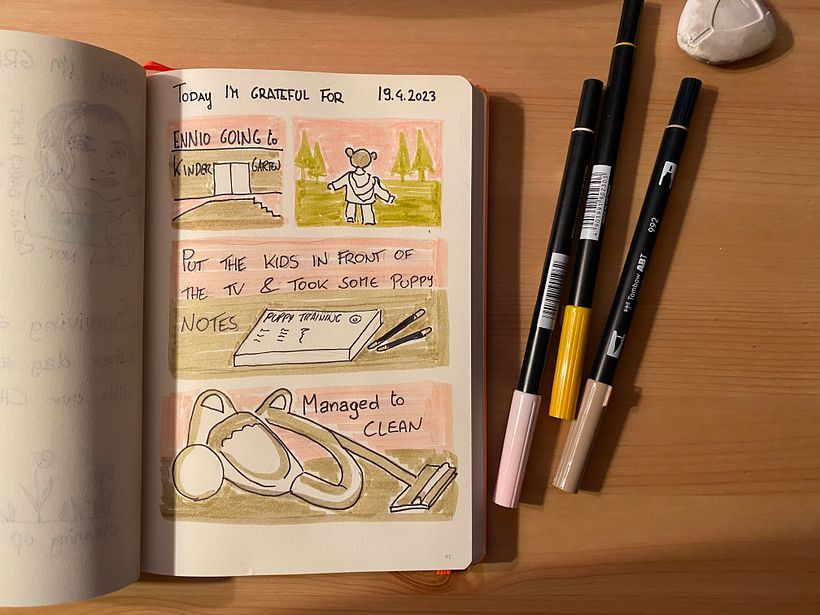 Today I'm GRATEFUL FOR 19.4.2023
ENNIO GOING to
KINDER GARTEN
PUT THE KIDS IN FRONT OF
THE TV & TOOK SOME PUPPY
NOTES
PUPPY TRAINING
Managed to
CLEAN
93
992
Tombow ABT